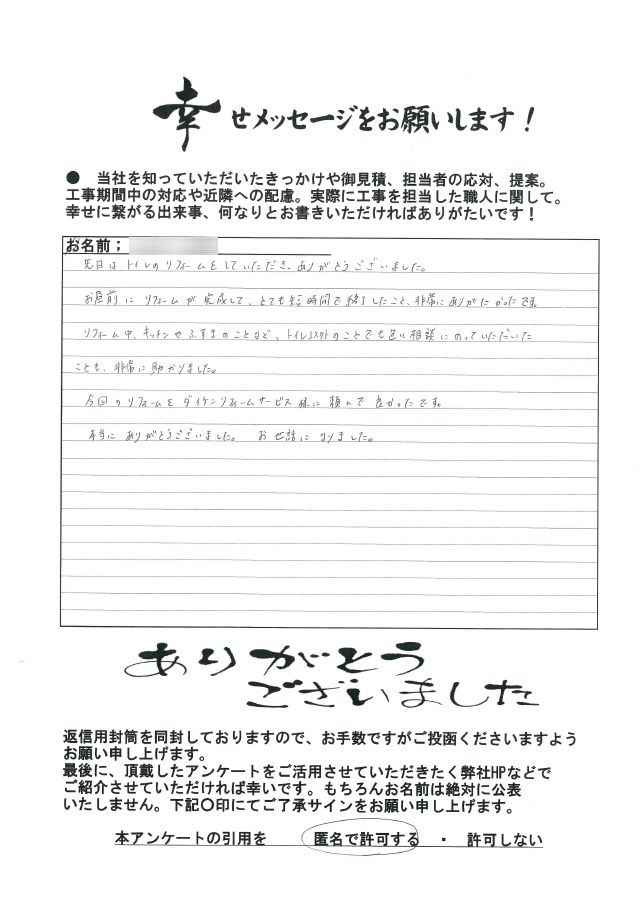 幸せメッセージをお願いします！
● 当社を知っていただいたきっかけや御見積、担当者の応対、提案。
工事期間中の対応や近隣への配慮。実際に工事を担当した職人に関して。
幸せに繋がる出来事、何なりとお書きいただければありがたいです！
お名前；
先日はトイレのリフォームをしていただき、ありがとうございました。
お昼前にリフォームが完成して、とても短時間で終了したこと、非常にありがたかったです。
リフォーム中、キッチンやふすまのことなど、トイレ以外のことでも色々相談にのっていただいた
ことも、非常に助かりました。
今回のリフォームをダイケンリフォームサービス様に頼んで良かったです。
本当にありがとうございました。 お世話になりました。
ありがとう
ございました
返信用封筒を同封しておりますので、お手数ですがご投函くださいますよう
お願い申し上げます。
最後に、頂戴したアンケートをご活用させていただきたく弊社HPなどで
ご紹介させていただければ幸いです。もちろんお名前は絶対に公表
いたしません。下記〇印にてご了承サインをお願い申し上げます。
本アンケートの引用を 匿名で許可する ・ 許可しない